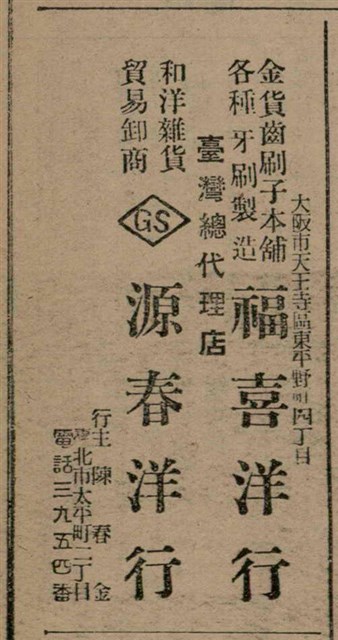 大阪市天王寺區東平野町四丁目
金貨齒刷子本舖
各種牙刷製造
福喜洋行
臺灣總代理店
和洋雜貨
貿易卸商
GS
源春洋行
行主 陳春金
臺北市太平町二丁目
電話三九五四番